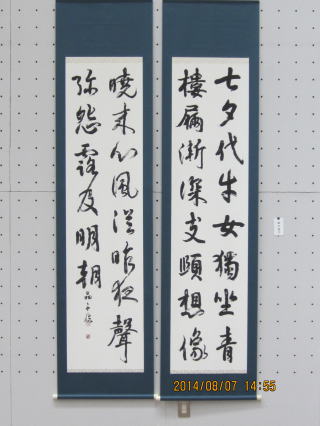 七夕代牛女獨坐青
樓漏漸深支頤想像
曉来心風從昨夜聲
弥怨露及明朝
2014/08/07 14:55